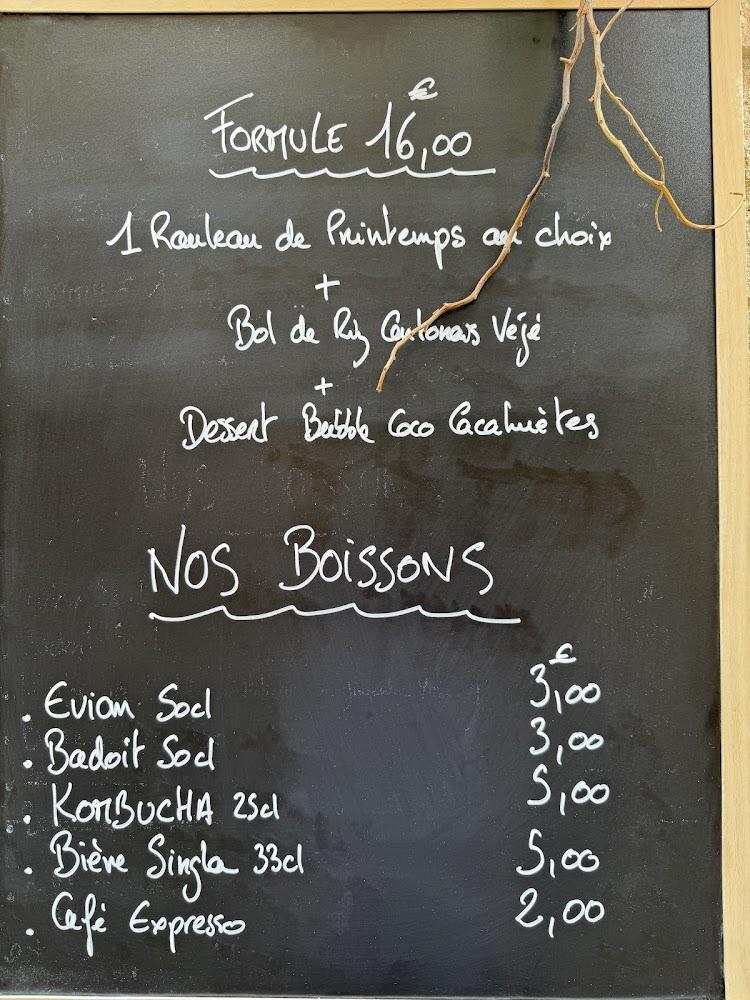 FORMULE 16,00 €
1 Rouleau de Printemps au choix
+
Bol de Riz Cantonais Végé
+
Dessert Bubble Coco Cacahuètes
NOS BOISSONS
. Evian 50cl 3,00 €
. Badoit 50cl 3,00
. KOMBUCHA 25cl 5,00
. Bière Singha 33cl 5,00
. Café Expresso 2,00